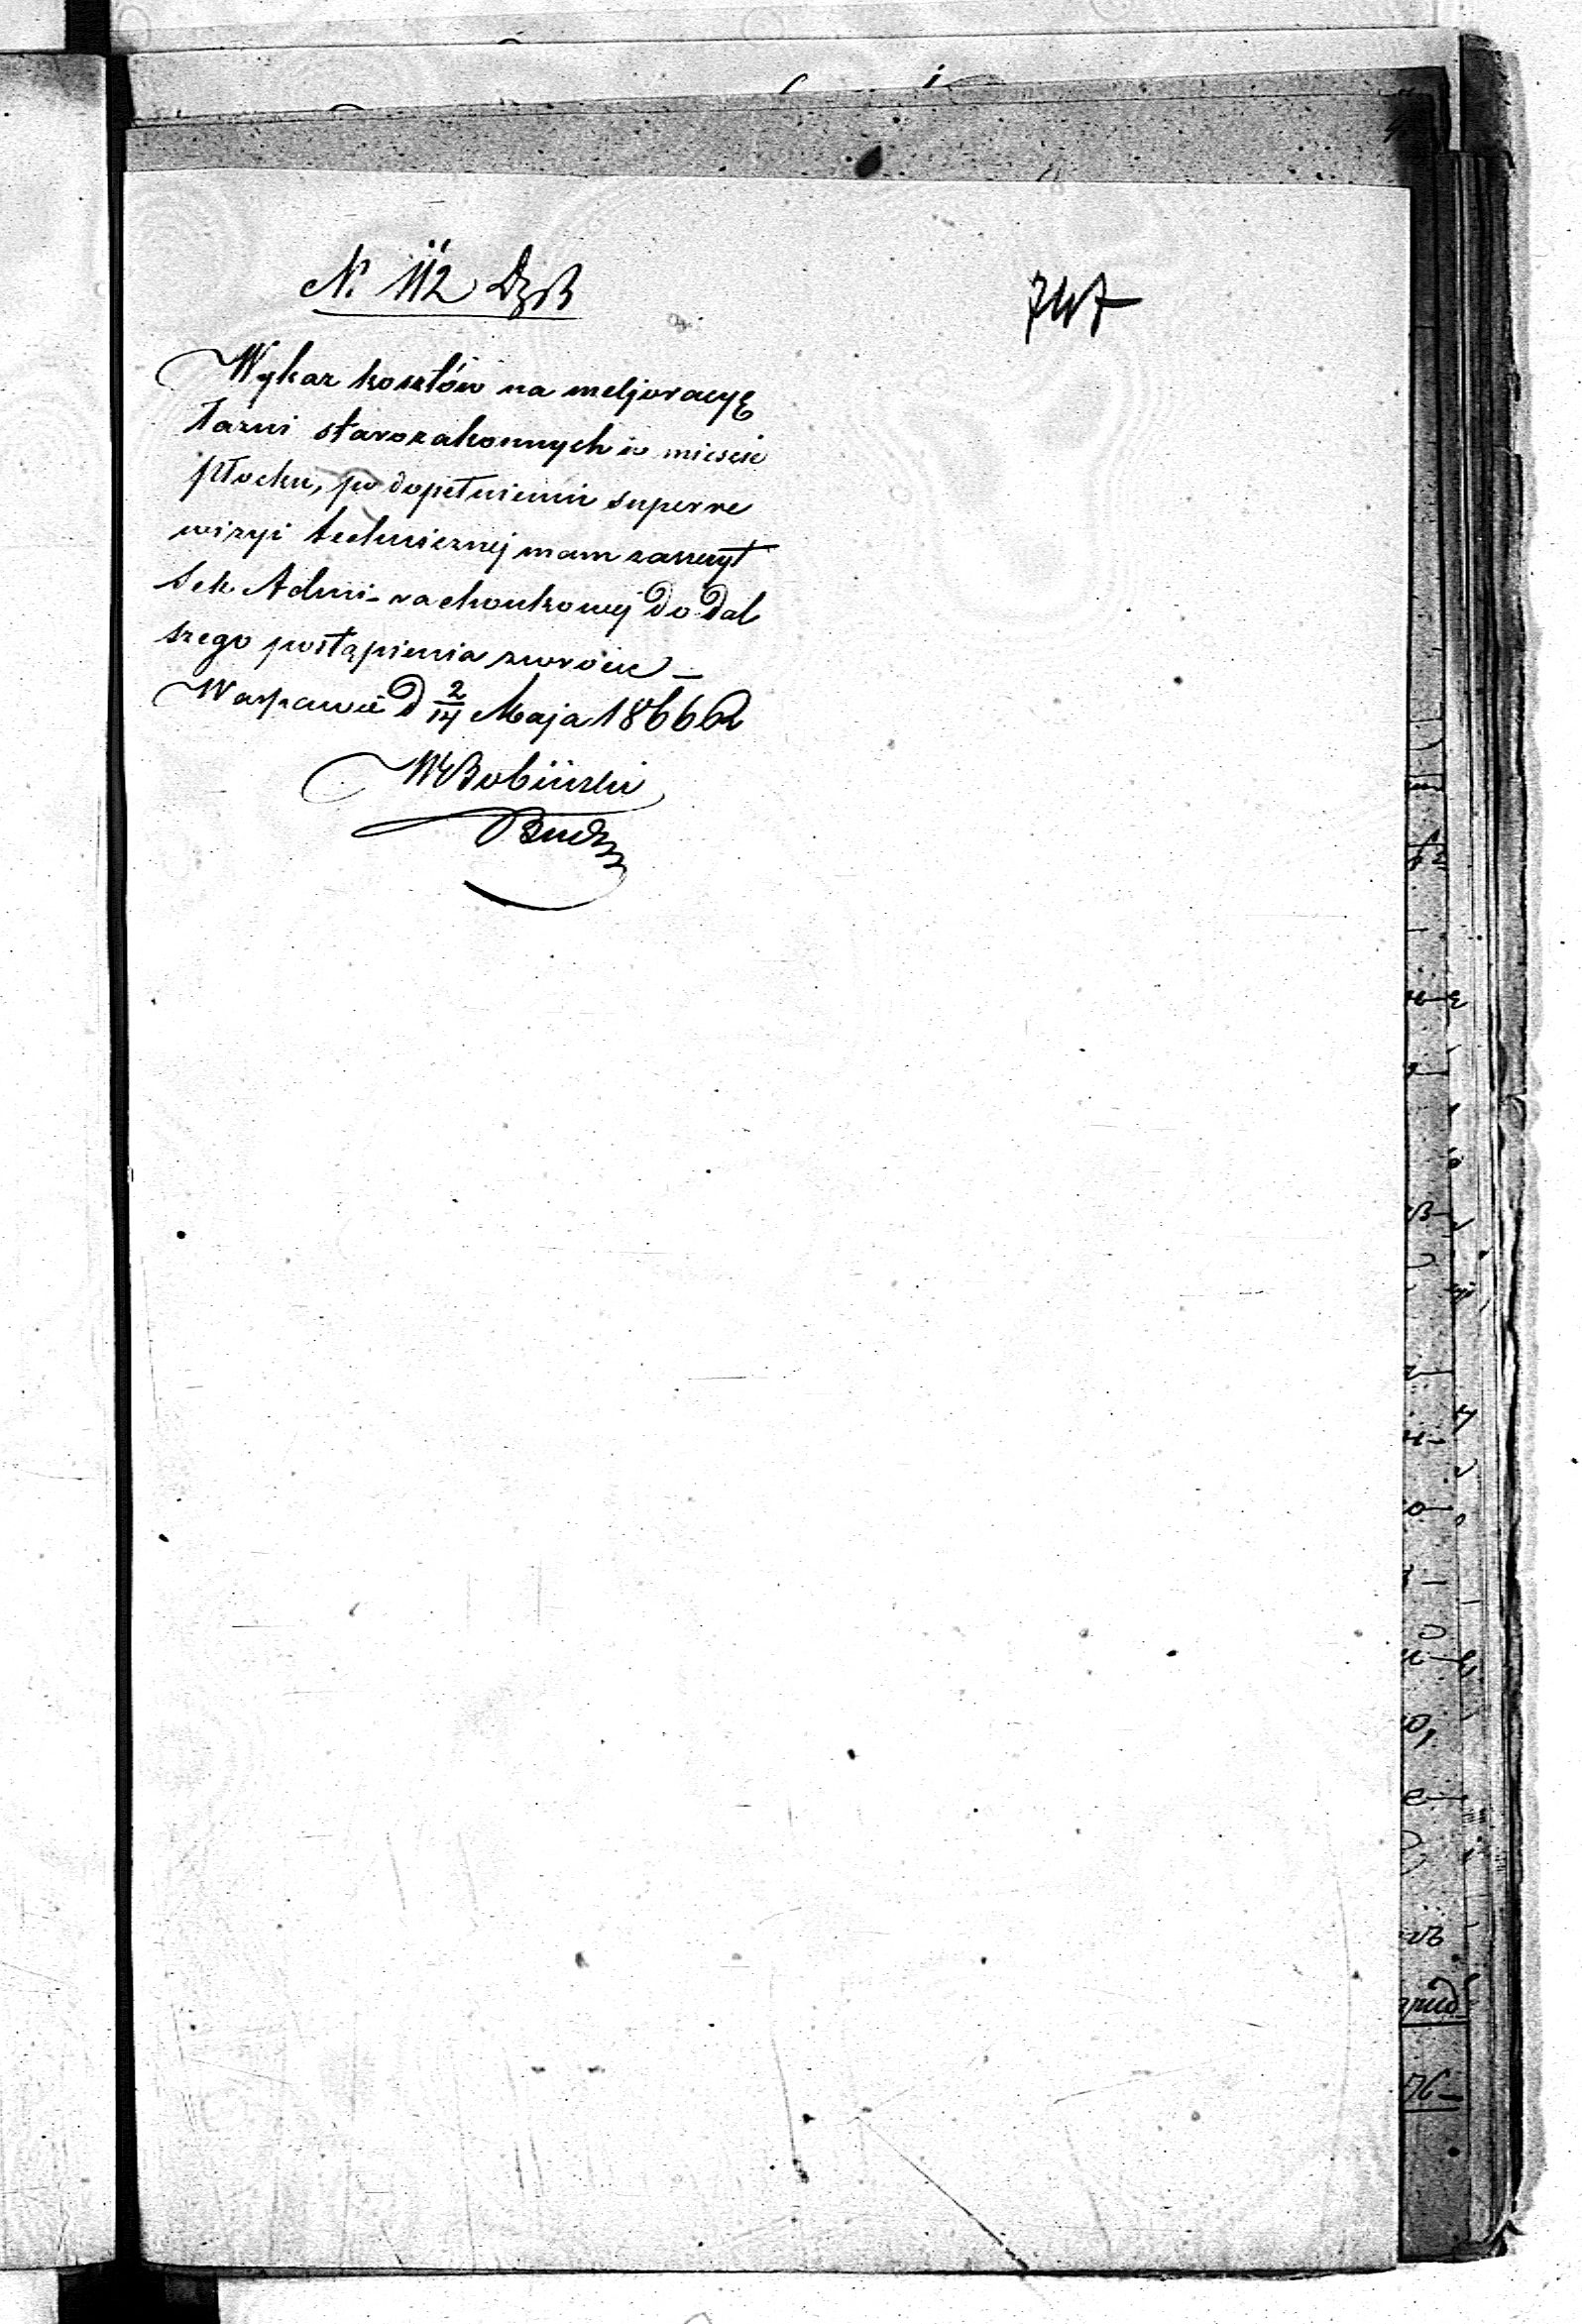 N. 112 DzB
747
Wykaz kosztów na meljoracyę
Łazni starozakonnych w miescie
Płocku, po dopełnieniu superre
wizyi technicznej mam zaszczyt
Sek Admi-rachonkowej do dal
szego postąpienia zwrócic –
Warszawie D 2/14 Maja 1866 R
WBobiński